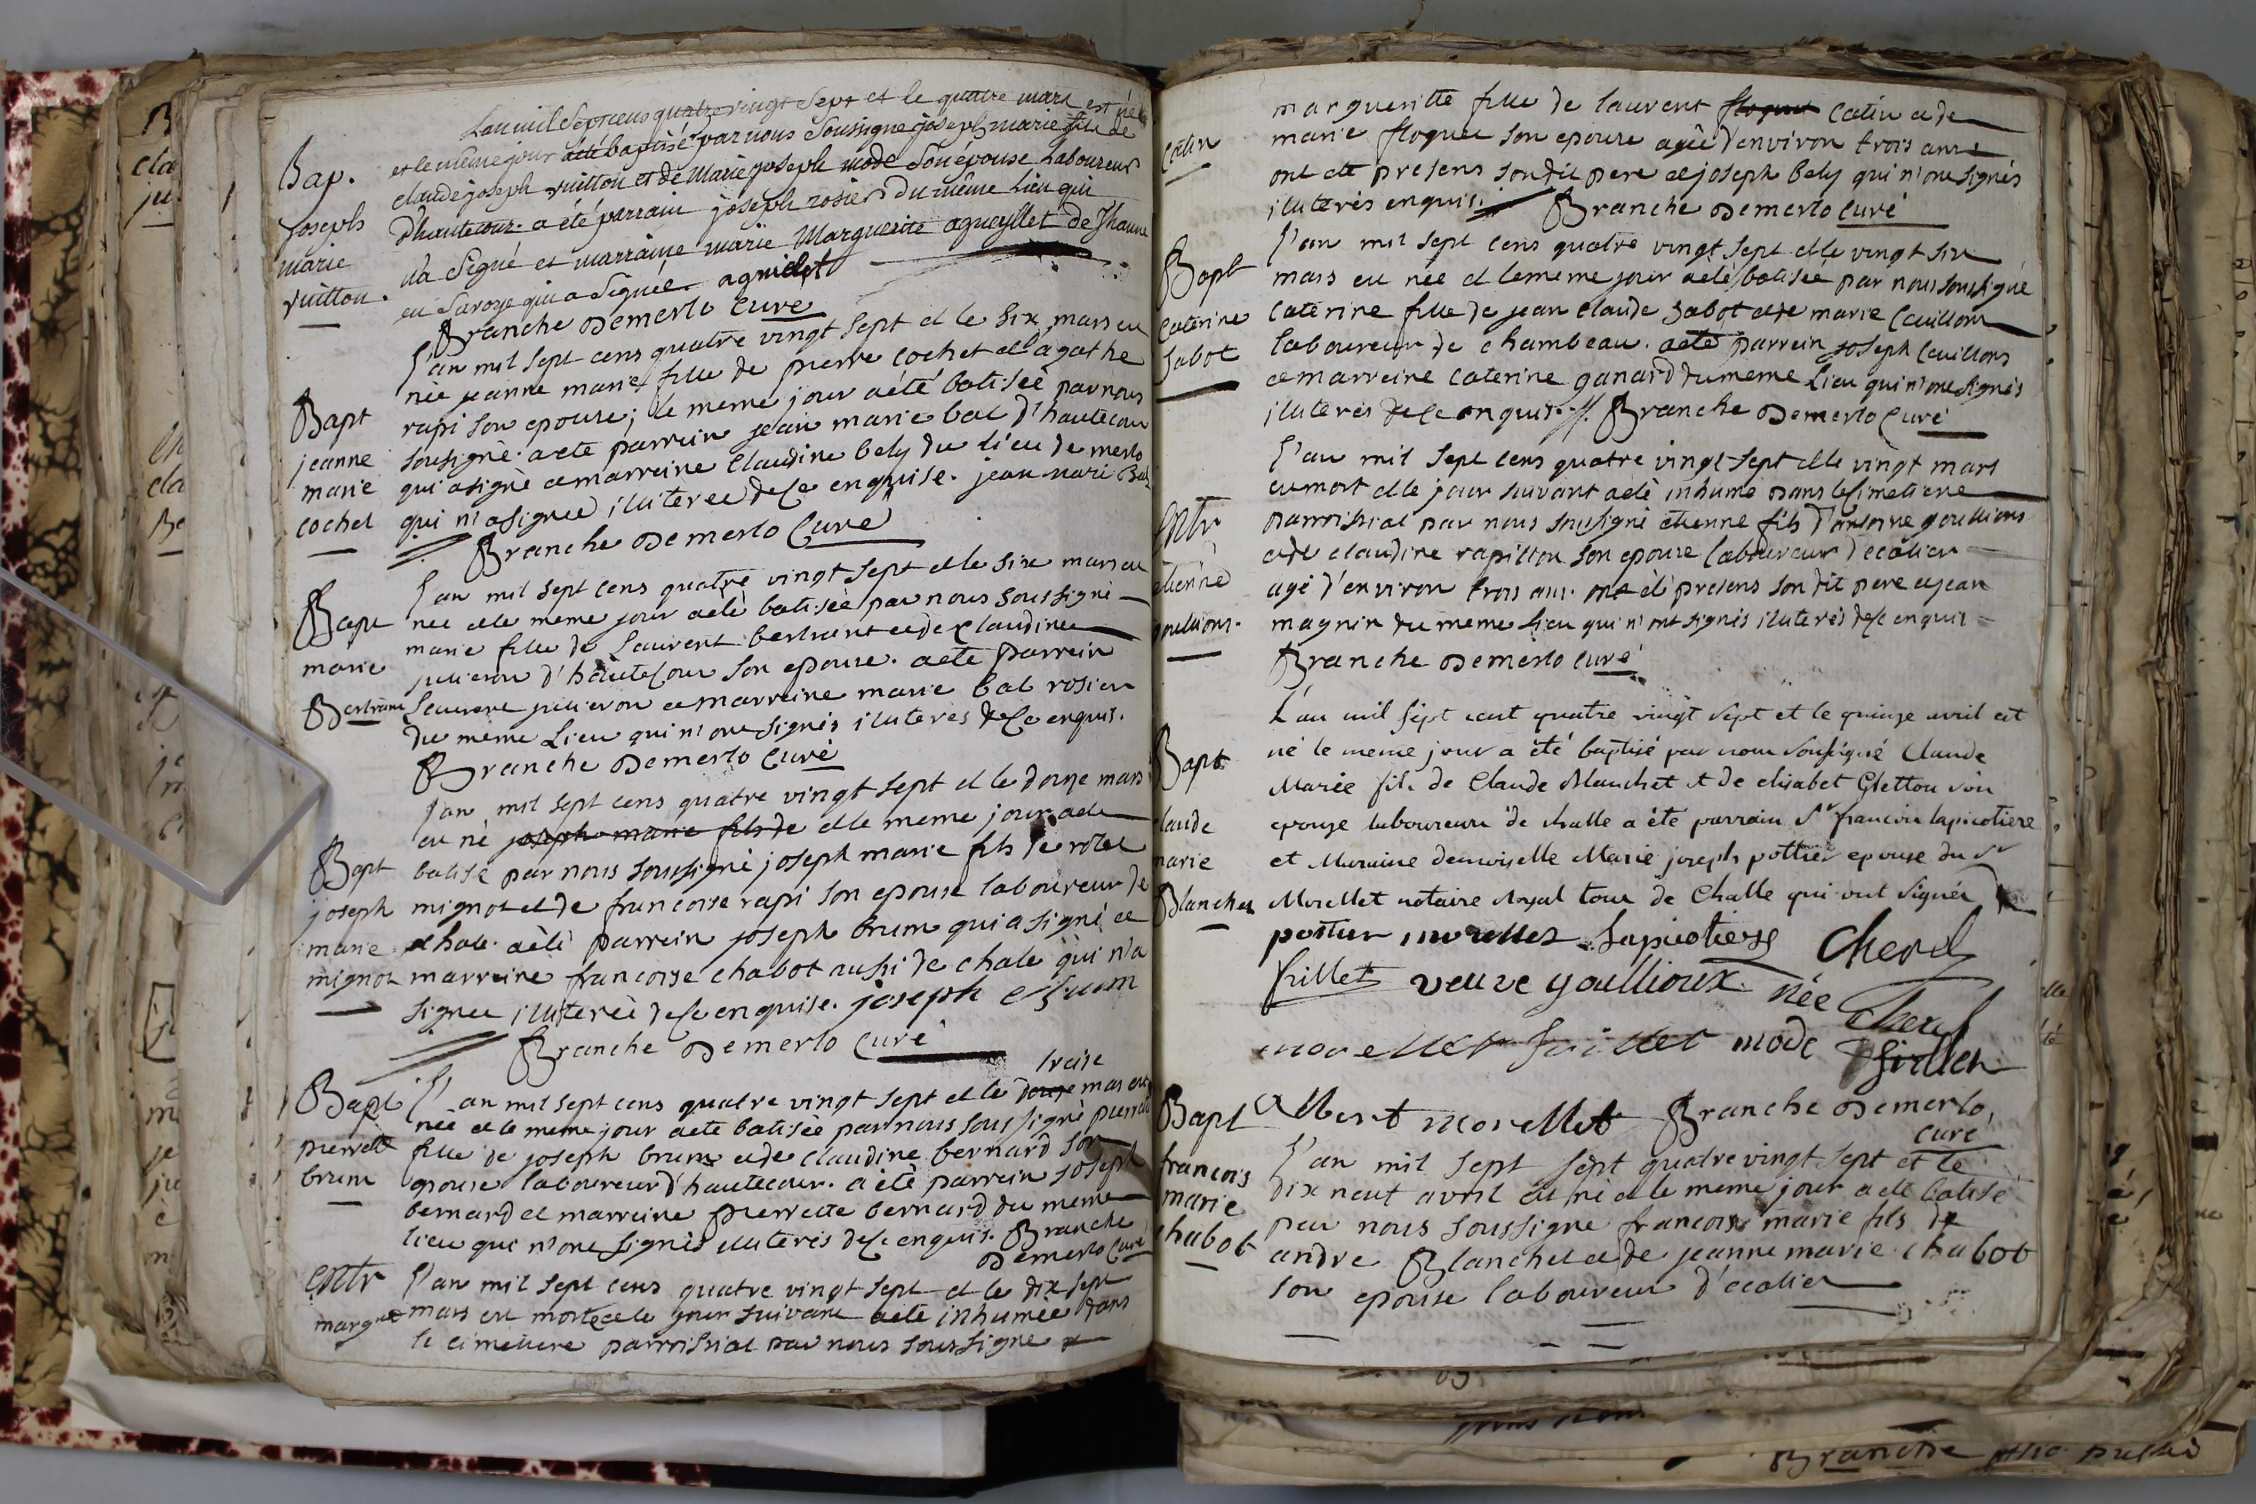 Bap.
joseph
marie
vuitton.
L'an mil sept cens quatre vingt sept et le quatre mars est né
et le même jour a été baptisé par nous soussigné joseph marie fils de
claude joseph vuitton et de Marie joseph mode son épouse Laboureur
d'hautecour. a été parrain joseph rosier du même lieu qui
n'a signé et marraine marie Marguerite agueyllet de
en Savoye qui a signée. agniellet
Branche Demerlo Curé
Bapt
jeanne
marie
cochet
l'an mil sept cens quatre vingt sept et le six mars eu
née jeanne marie fille de pierre cochet et d'agathe
rapi son epouse; le meme jour aété batiseé par nous
sousigné. aete parrein jean marie bal d'hautecour
qui asigné et marreine Claudine bely du lieu de merlo
qui n'a signee iluteree dece enquise. jean marie Bal
Branche Demerlo Curé
Bapt
marie
Bertram
l'an mil sept cens quatre vingt sept et le six mars eu
née et le meme jour aeté batiseé par nous soussigné
marie fille de Laurent bertrant et de Claudine
julieron d'hauteCour son epouse. aete parrein
Laurent julieron et marreine marie bal rosier
du même Lieu qui n'ont signés iluteres dece enquis.
Branche Demerlo Curé
Bapt
joseph
marie
mignot
l'an mil sept cens quatre vingt sept et le douze mars
eu né joseph marie fils de et le meme jour aete
batisé par nous soussigné joseph marie fils de
mignot et de francoise rapi son epouse laboureur de
chale. aété parrein joseph brum qui a signé et
marreine francoise chabot aussi de chale qui n'a
signee iluteréé dece enquise. joseph Brum
Branche Demerlo Curé
Bapt
pierrette
brum
traise
l'an mil sept cens quatre vingt sept et le douze mars eu
née et le meme jour aete batiseé par nous soussigné pierrette
fille de joseph brum et de claudine bernard son
epouse laboureur d'hautecour. a été parrein joseph
bernard et marreine pierrette bernard du meme
lieu qui n'ont signés iluterés dece enquis. Branche
Demerlo Curé
Entr
margue
l'an mil sept cens quatre vingt sept et le dix sept
mars eu morte et le jour suivant aete inhumeé dans
le cimetiere parroissial par nous soussigne
catin
margueritte fille de laurent floquet catin et de
marie floquet son epouse ageé d'environ trois ans
ont ete presens son dit pere et joseph bely qui n'ont signés
iluterés enquis. Branche Demerlo Curé
Bapt
Caterine
Sabot
l'an mil sept cens quatre vingt sept et le vingt six
mars eu née et le meme jour aeté batiseé par nous soussigné
Caterine fille de jean claude Sabot et de marie Cuillom
laboureur de chambeau. aeté parrein joseph Cuillons
et marreine Caterine ganard du meme Lieu qui n'ont signés
iluterés dece enquis. Branche Demerlo Curé
Entr
etienne
goullions.
l'an mil sept cens quatre vingt sept et le vingt mars
eu mort et le jour suivant aeté inhumé dans le cimetiere
parroissial par nous soussigné etienne fils d'antoine goullions
et de claudine rapillon son epouse laboureur d'ecolier
agé d'environ trois ans. ont été presens son dit pere et jean
magnin du meme Lieu qui n'ont signés iluterés dece enquis
Branche Demerlo Curé
Bapt
claude
marie
Blanchet
L'an mil sept cent quatre vingt sept et le quinze avril est
né le meme jour a été baptisé par nous soussigné Claude
Marie fils de Claude Blanchet et de elisabet Glettou son
epouze laboureur de challe a été parrain Sr francois lapicotiere
et Maraine demoiselle Marie joseph pottier epouse du Sr
Morellet notaire Royal tous de Challe qui ont signés
pottier morellet Lapicotiere Cherel
frillet veuve gaullioux née
Cherel
morellet frillet mode frillet
Albert morellet Branche Demerlo,
Curé
Bapt
francois
marie
chabot
l'an mil sept sept quatre vingt sept et le
dix neuf avril eu né et le meme jour a ete batisé
par nous soussigne francois marie fils de
andre Blanchet et de jeanne marie chabot
son epouse laboureur d'ecolier